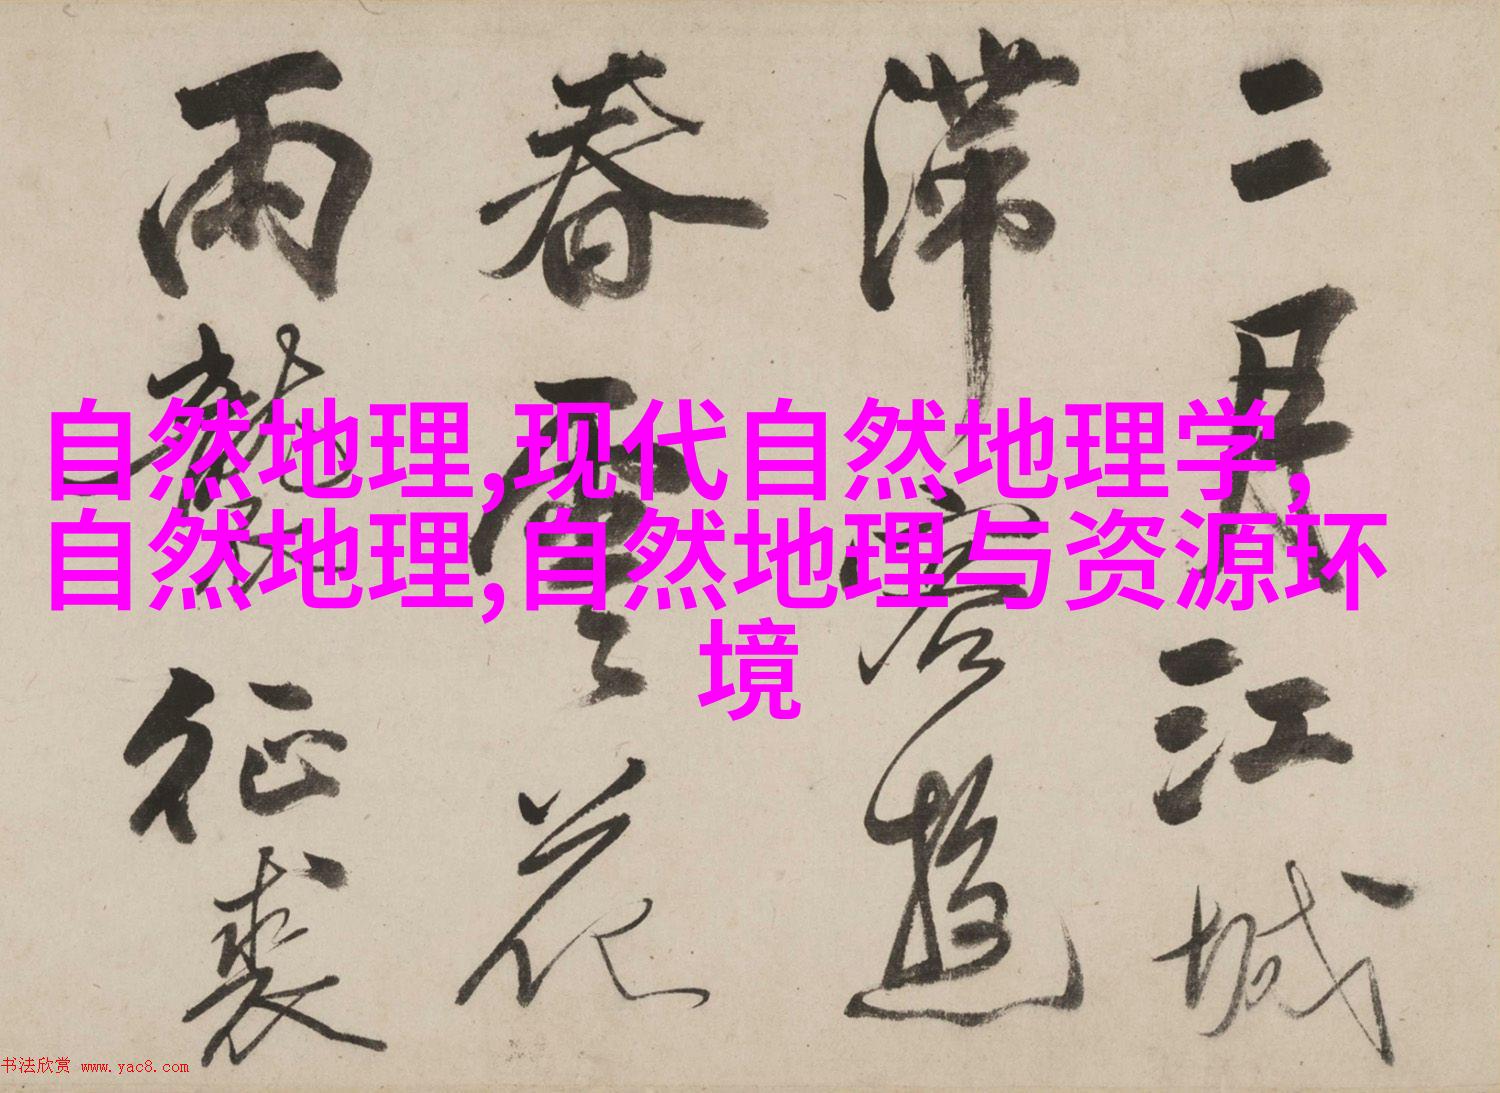 自然地理,现代自然地理学,
自然地理,自然地理与资源环
境
二月江城
滞客遊
春雲花
雨龍征裘
书法欣赏 www.yac8.com